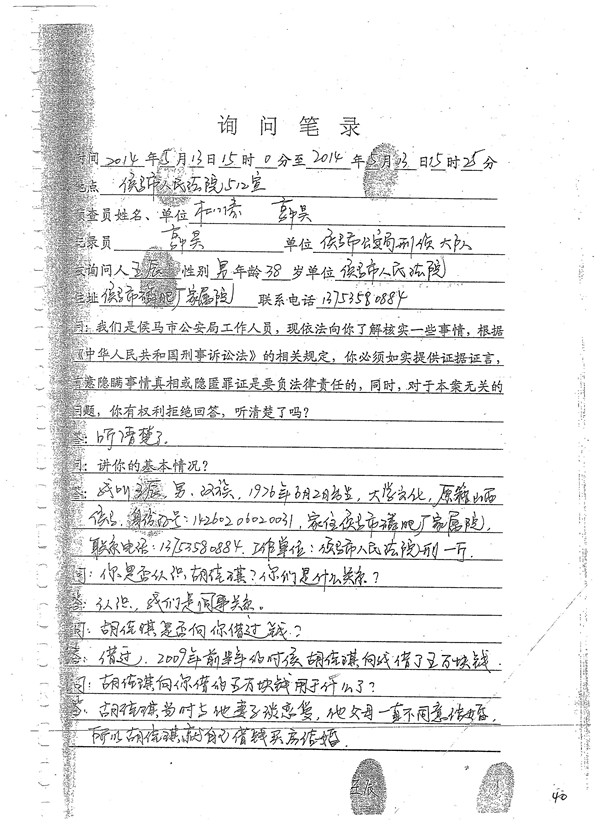 询问笔录
时间 2014 年 5 月 13 日 15 时 0 分至 2014 年 5 月 13 日 15 时 25 分
地点 侯马市人民法院512室
侦查员姓名、单位 韩昊
记录员 韩昊 单位 侯马市公安局刑侦大队
被询问人 王辰 性别 男 年龄 38 岁 单位 侯马市人民法院
住址 侯马市磷肥厂家属院 联系电话 13753580884
问：我们是侯马市公安局工作人员，现依法向你了解核实一些事情，根据
《中华人民共和国刑事诉讼法》的相关规定，你必须如实提供证据证言，
有意隐瞒事情真相或隐匿罪证是要负法律责任的，同时，对于本案无关的
问题，你有权利拒绝回答，听清楚了吗？
答：听清楚了．
问：讲你的基本情况？
答：我叫王辰，男，汉族，1976年6月2日出生，大学文化，原籍山西
侯马，身份证号：14260206020031，家住侯马市磷肥厂家属院，
联系电话：13753580884．工作单位：侯马市人民法院刑一厅．
问：你是否认识胡佳琪？你们是什么关系？
答：认识，我们是同事关系。
问：胡佳琪是否向你借过钱？
答：借过，2009年前半年的时候胡佳琪向我借了五万块钱．
问：胡佳琪向你借的五万块钱用于什么了？
答：胡佳琪当时与他妻子谈恋爱，他父母一直不同意结婚，
所以胡佳琪就自己借钱买房结婚．
王辰
40